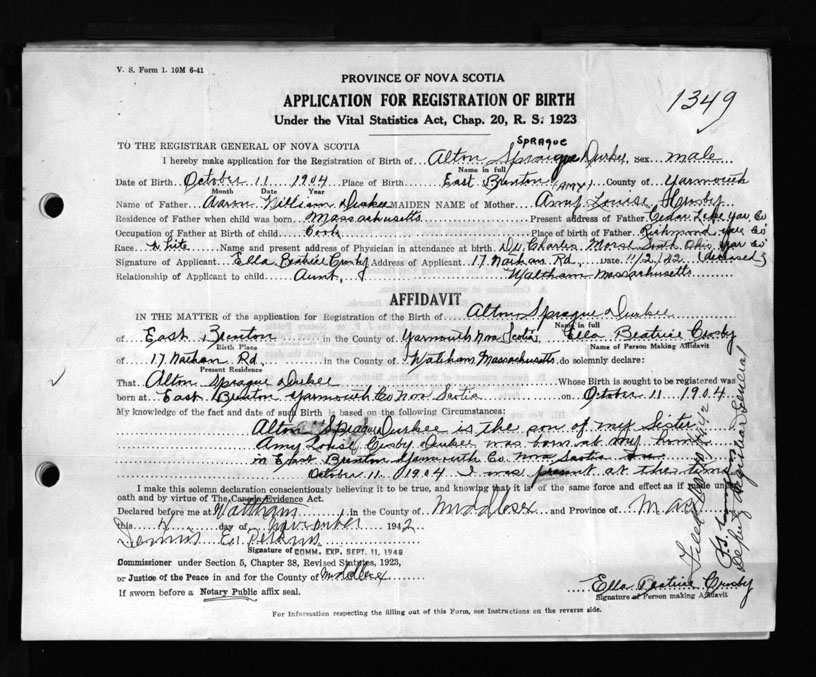 V. S. Form 1. 10M 6-41
1349
PROVINCE OF NOVA SCOTIA
APPLICATION FOR REGISTRATION OF BIRTH
Under the Vital Statistics Act, Chap. 20, R. S. 1923
TO THE REGISTRAR GENERAL OF NOVA SCOTIA
SPRAGUE
I hereby make application for the Registration of Birth of Alton Sprague Durkee, sex male
Name in full
Date of Birth October 11 1904 Place of Birth East Brenton (AMY) County of Yarmouth
Month Date Year
Name of Father Aaron William Durkee MAIDEN NAME of Mother Amy Louise Crosby
Residence of Father when child was born Massachusetts Present address of Father Cedar Lake Yar. Co
Occupation of Father at Birth of child Cook Place of Birth of Father Richmond Yar. Co
Race White Name and present address of Physician in attendance at birth Dr. Charles Morse South Ohio, Yar Co (deceased)
Signature of Applicant Ella Beatrice Crosby Address of Applicant 17 Nathan Rd, Date 11/2/42
Relationship of Applicant to child Aunt, Waltham Massachusetts
AFFIDAVIT
IN THE MATTER of the application for Registration of the Birth of Alton Sprague Durkee
Name in full
of East Brenton in the County of Yarmouth Nova Scotia, Ella Beatrice Crosby
Birth Place Name of Person Making Affidavit
of 17 Nathan Rd. in the County of Waltham, Massachusetts do solemnly declare:
Present Residence
That Alton Sprague Durkee Whose Birth is sought to be registered was
born at East Brenton Yarmouth Co Nova Scotia on October 11 1904.
My knowledge of the fact and date of such Birth is based on the following Circumstances:
Alton Sprague Durkee is the son of my Sister
Amy Louise Crosby Durkee was born at my home
in East Brenton Yarmouth Co. Nova Scotia
October 11 1904 I was present at the time
I make this solemn declaration conscientiously believing it to be true, and knowing that it is of the same force and effect as if made under
oath and by virtue of The Canada Evidence Act.
Declared before me at Waltham in the County of Middlesex and Province of Mass
this 2 day of November 1942
Dennis E. Perkins
Signature of COMM. EXP. SEPT. 11, 1948
Commissioner under Section 5, Chapter 38, Revised Statutes, 1923,
or Justice of the Peace in and for the County of Middlesex
If sworn before a Notary Public affix seal.
Ella Beatrice Crosby
Signature of Person making Affidavit
For Information respecting the filling out of this Form, see Instructions on the reverse side.
Filed
Deputy Registrar General